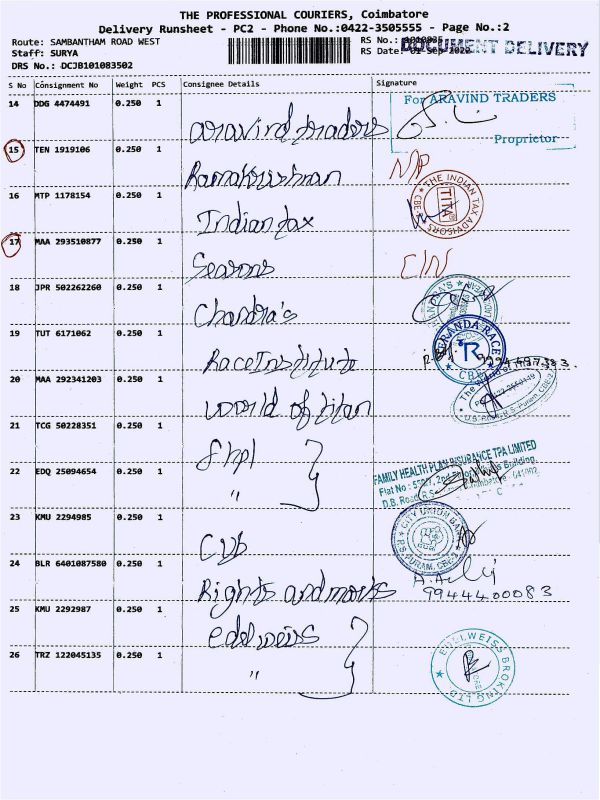 THE PROFESSIONAL COURIERS, Coimbatore
Delivery Runsheet - PC2 - Phone No.:0422-3505555 - Page No.:2
Route: SAMBANTHAM ROAD WEST RS No.: 1010835
Staff: SURYA RS Date: 01-Sep-2022 DOCUMENT DELIVERY
DRS No.: DCJB101083502
S No Consignment No Weight PCS Consignee Details Signature
14 DDG 4474491 0.250 1 aravind traders
For ARAVIND TRADERS
Proprietor
15 TEN 1919106 0.250 1 Ramakrishnan N/P
16 MTP 1178154 0.250 1 Indian tax
THE INDIAN TAX ADVISORS CBE
TITA
17 MAA 293510877 0.250 1 Seasons C/N
18 JPR 502262260 0.250 1 Chandra's
19 TUT 6171062 0.250 1 Race Institute
VERANDA RACE
R
CBE
20 MAA 292341203 0.250 1 world of titan
The World of Titan
21 TCG 50228351 0.250 1 fhpl
22 EDQ 25094654 0.250 1 "
FAMILY HEALTH PLAN INSURANCE TPA LIMITED
23 KMU 2294985 0.250 1 CUB
CITY UNION BANK
R.S. PURAM, CBE-2
24 BLR 6401087580 0.250 1 Rights and marks
9944400083
25 KMU 2292987 0.250 1 edelweiss
26 TRZ 122045135 0.250 1 "
EDELWEISS BROKING LTD